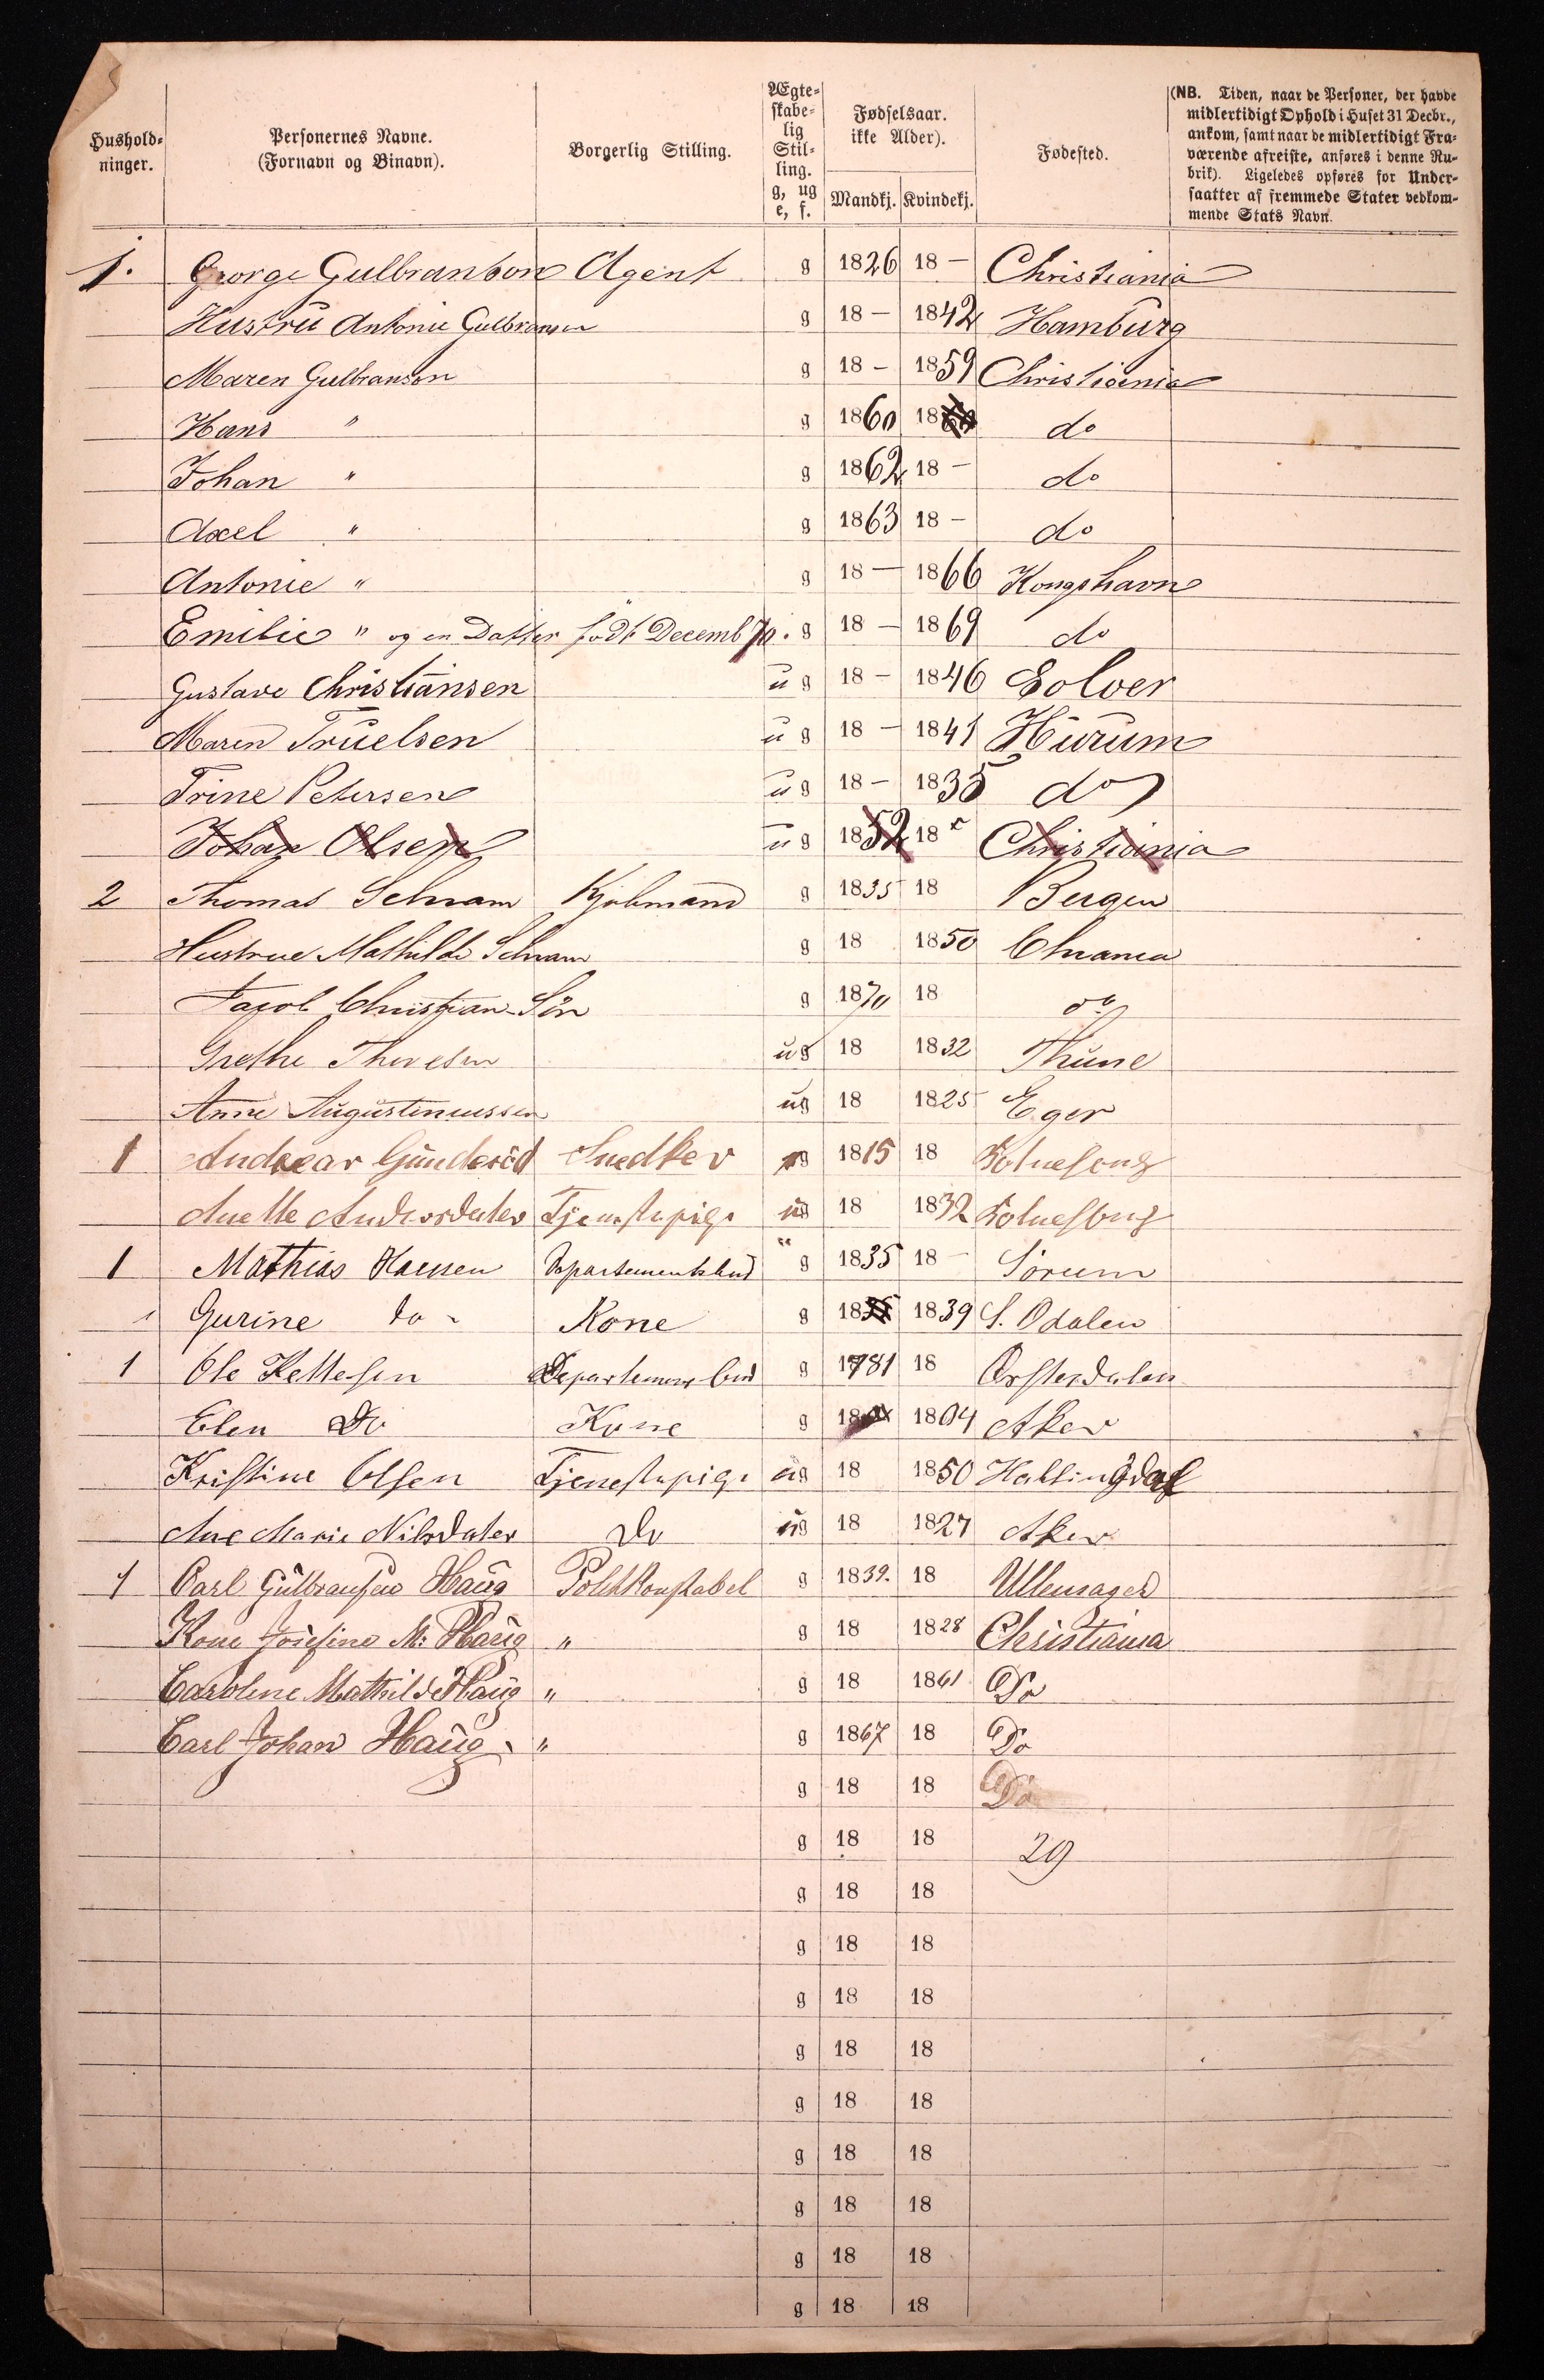 Hushold-
ninger.
Personernes Navne.
(Fornavn og Binavn).
Borgerlig Stilling.
Ægte-
skabe-
lig
Stil-
ling.
g, ug
e, f.
Fødselsaar.
ikke Alder).
Mandkj. Kvindekj.
Fødested.
(NB. Tiden, naar de Personer, der havde
midlertidigt Ophold i Huset 31 Decbr.,
ankom, samt naar de midlertidigt Fra-
værende afreiste, anføres i denne Ru-
brik). Ligeledes opføres for Under-
saatter af fremmede Stater vedkom-
mende Stats Navn.
1. George Gulbranson Agent g 1826 18 - Christiania
Hustrü Antonie Gulbransen g 18 - 1842 Hamburg
Maren Gulbranson g 18 - 1859 Christiania
Hans " g 1860 18 do
Johan " g 1862 18 - do
Axel " g 1863 18 - do
Antonie " g 18 - 1866 Kongshavn
Emilie " og en Datter født Decemb 70. g 18 - 1869 do
Gustave Christiansen ug 18 - 1846 Solver
Maren Truelsen ug 18 - 1841 Hurum
Trine Petersen ug 18 - 1835 do
Johan Olsen ug 1852 18 Christiania
2 Thomas Schram Kjøbmand g 1835 18 Bergen
Hustrue Mathilde Schram g 18 1850 Chrania
Jacob Christian Sön g 1870 18 do
Grethe ug 18 1832 Thune
Anne Augustinussen ug 18 1825 Eger
1 Snedker g 1815 18
Anette Andersdater Tjenstepige ug 18 1832
1 Mathias Hansen Departementsbud g 1835 18 - Sörum
1 Gurine do - Kone g 18 1839 S. Odalen
1 Ole Kettelsen Departementsbud g 1781 18 Østerdalen
Elen Do Kone g 18 1804 Aker
Kristine Olsen Tjenestepige ug 18 1850 Hallingdal
Ane Marie Nilsdater Do ug 18 1827 Aker
1 Carl Gulbransen Haug Politkonstabel g 1839. 18 Ullensager
Kone Josefine M: Haug " g 18 1828 Christiania
Caroline Mathilde Haug " g 18 1861 Do
Carl Johan Haug " g 1867 18 Do
g 18 18 Do
g 18 18 29
g 18 18
g 18 18
g 18 18
g 18 18
g 18 18
g 18 18
g 18 18
g 18 18
g 18 18